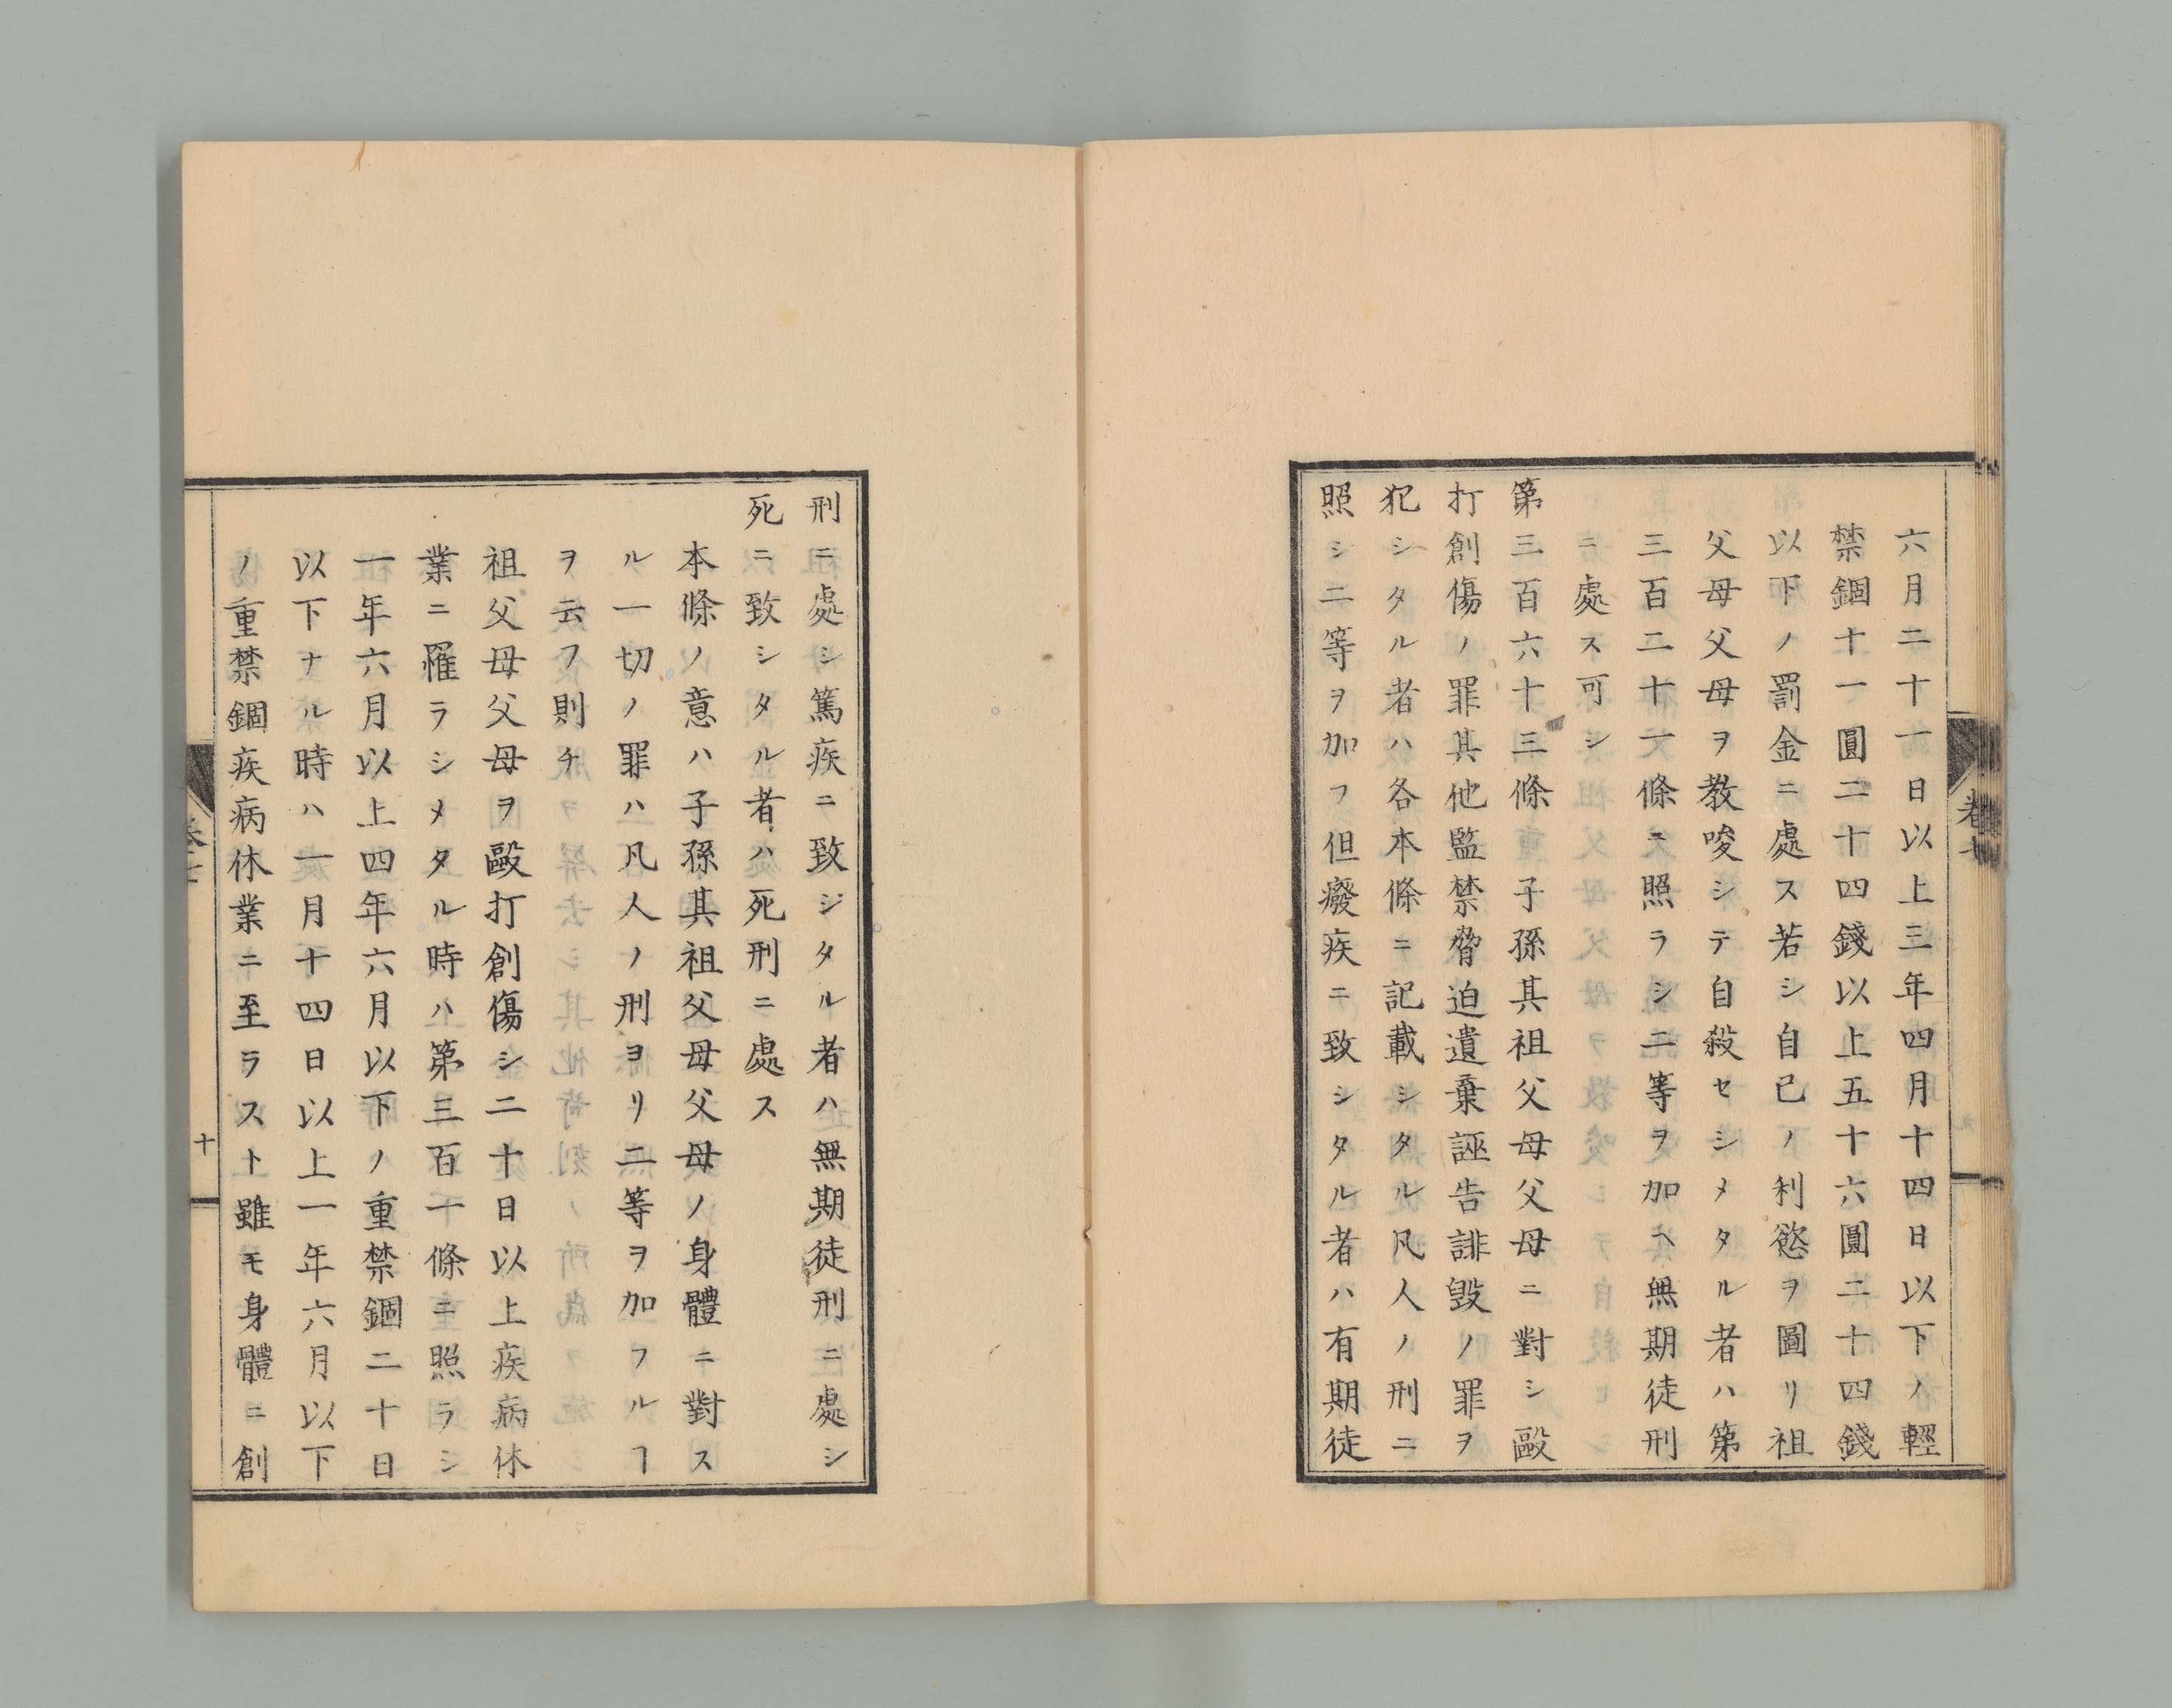 六月二十一日以上三年四月十四日以下ノ輕
禁錮十一圓二十四錢以上五十六圓二十四錢
以下ノ罰金ニ處ス若シ自己ノ利慾ヲ圖リ祖
父母父母ヲ教唆シテ自殺セシメタル者ハ第
三百二十一條ニ照ラシ二等ヲ加ヘ無期徒刑
ニ處ス可シ
第三百六十三條 子孫其祖父母父母ニ對シ毆
打創傷ノ罪其他監禁脅迫遺棄誣告誹毀ノ罪ヲ
犯シタル者ハ各本條ニ記載シタル凡人ノ刑ニ
照シ二等ヲ加フ但癈疾ニ致シタル者ハ有期徒
卷七
刑ニ處シ篤疾ニ致シタル者ハ無期徒刑ニ處シ
死ニ致シタル者ハ死刑ニ處ス
本條ノ意ハ子孫其祖父母父母ノ身體ニ對ス
ル一切ノ罪ハ凡人ノ刑ヨリ二等ヲ加フルヿ
ヲ云フ則チ
祖父母父母ヲ毆打創傷シ二十日以上疾病休
業ニ罹ラシメタル時ハ第三百一條ニ照ラシ
一年六月以上四年六月以下ノ重禁錮二十日
以下ナル時ハ一月十四日以上一年六月以下
ノ重禁錮疾病休業ニ至ラスト雖モ身體ニ創
十